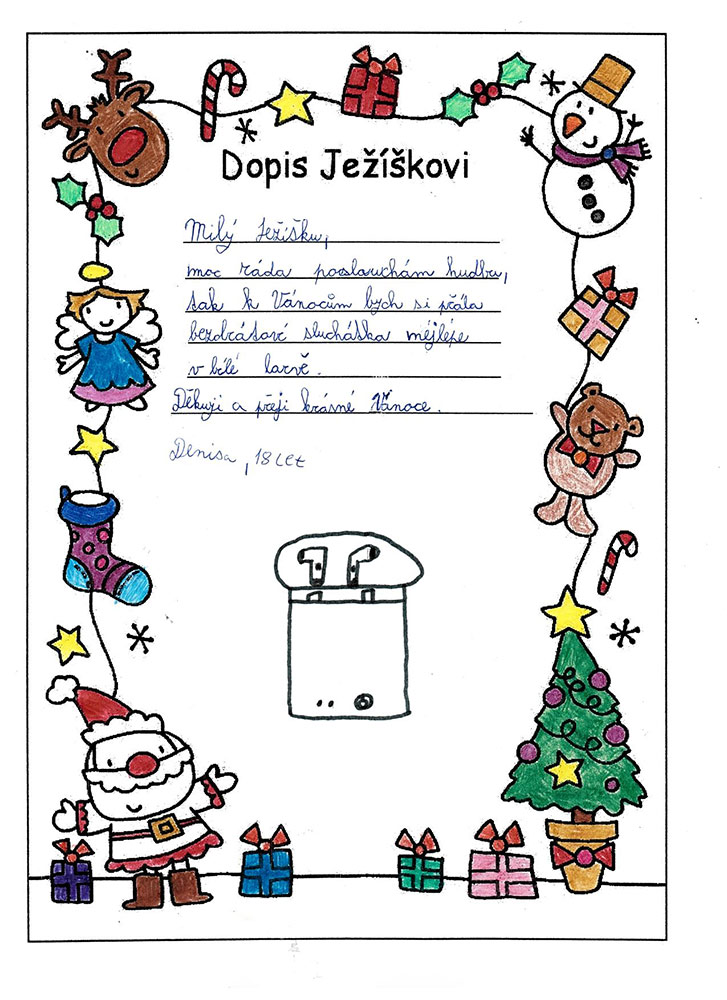 Dopis Ježíškovi
Milý Ježíšku,
moc ráda poslouchám hudbu,
tak k Vánocům bych si přála
bezdrátové sluchátka nejlépe
v bílé barvě.
Děkuji a přeji krásné Vánoce.
Denisa, 18 LET